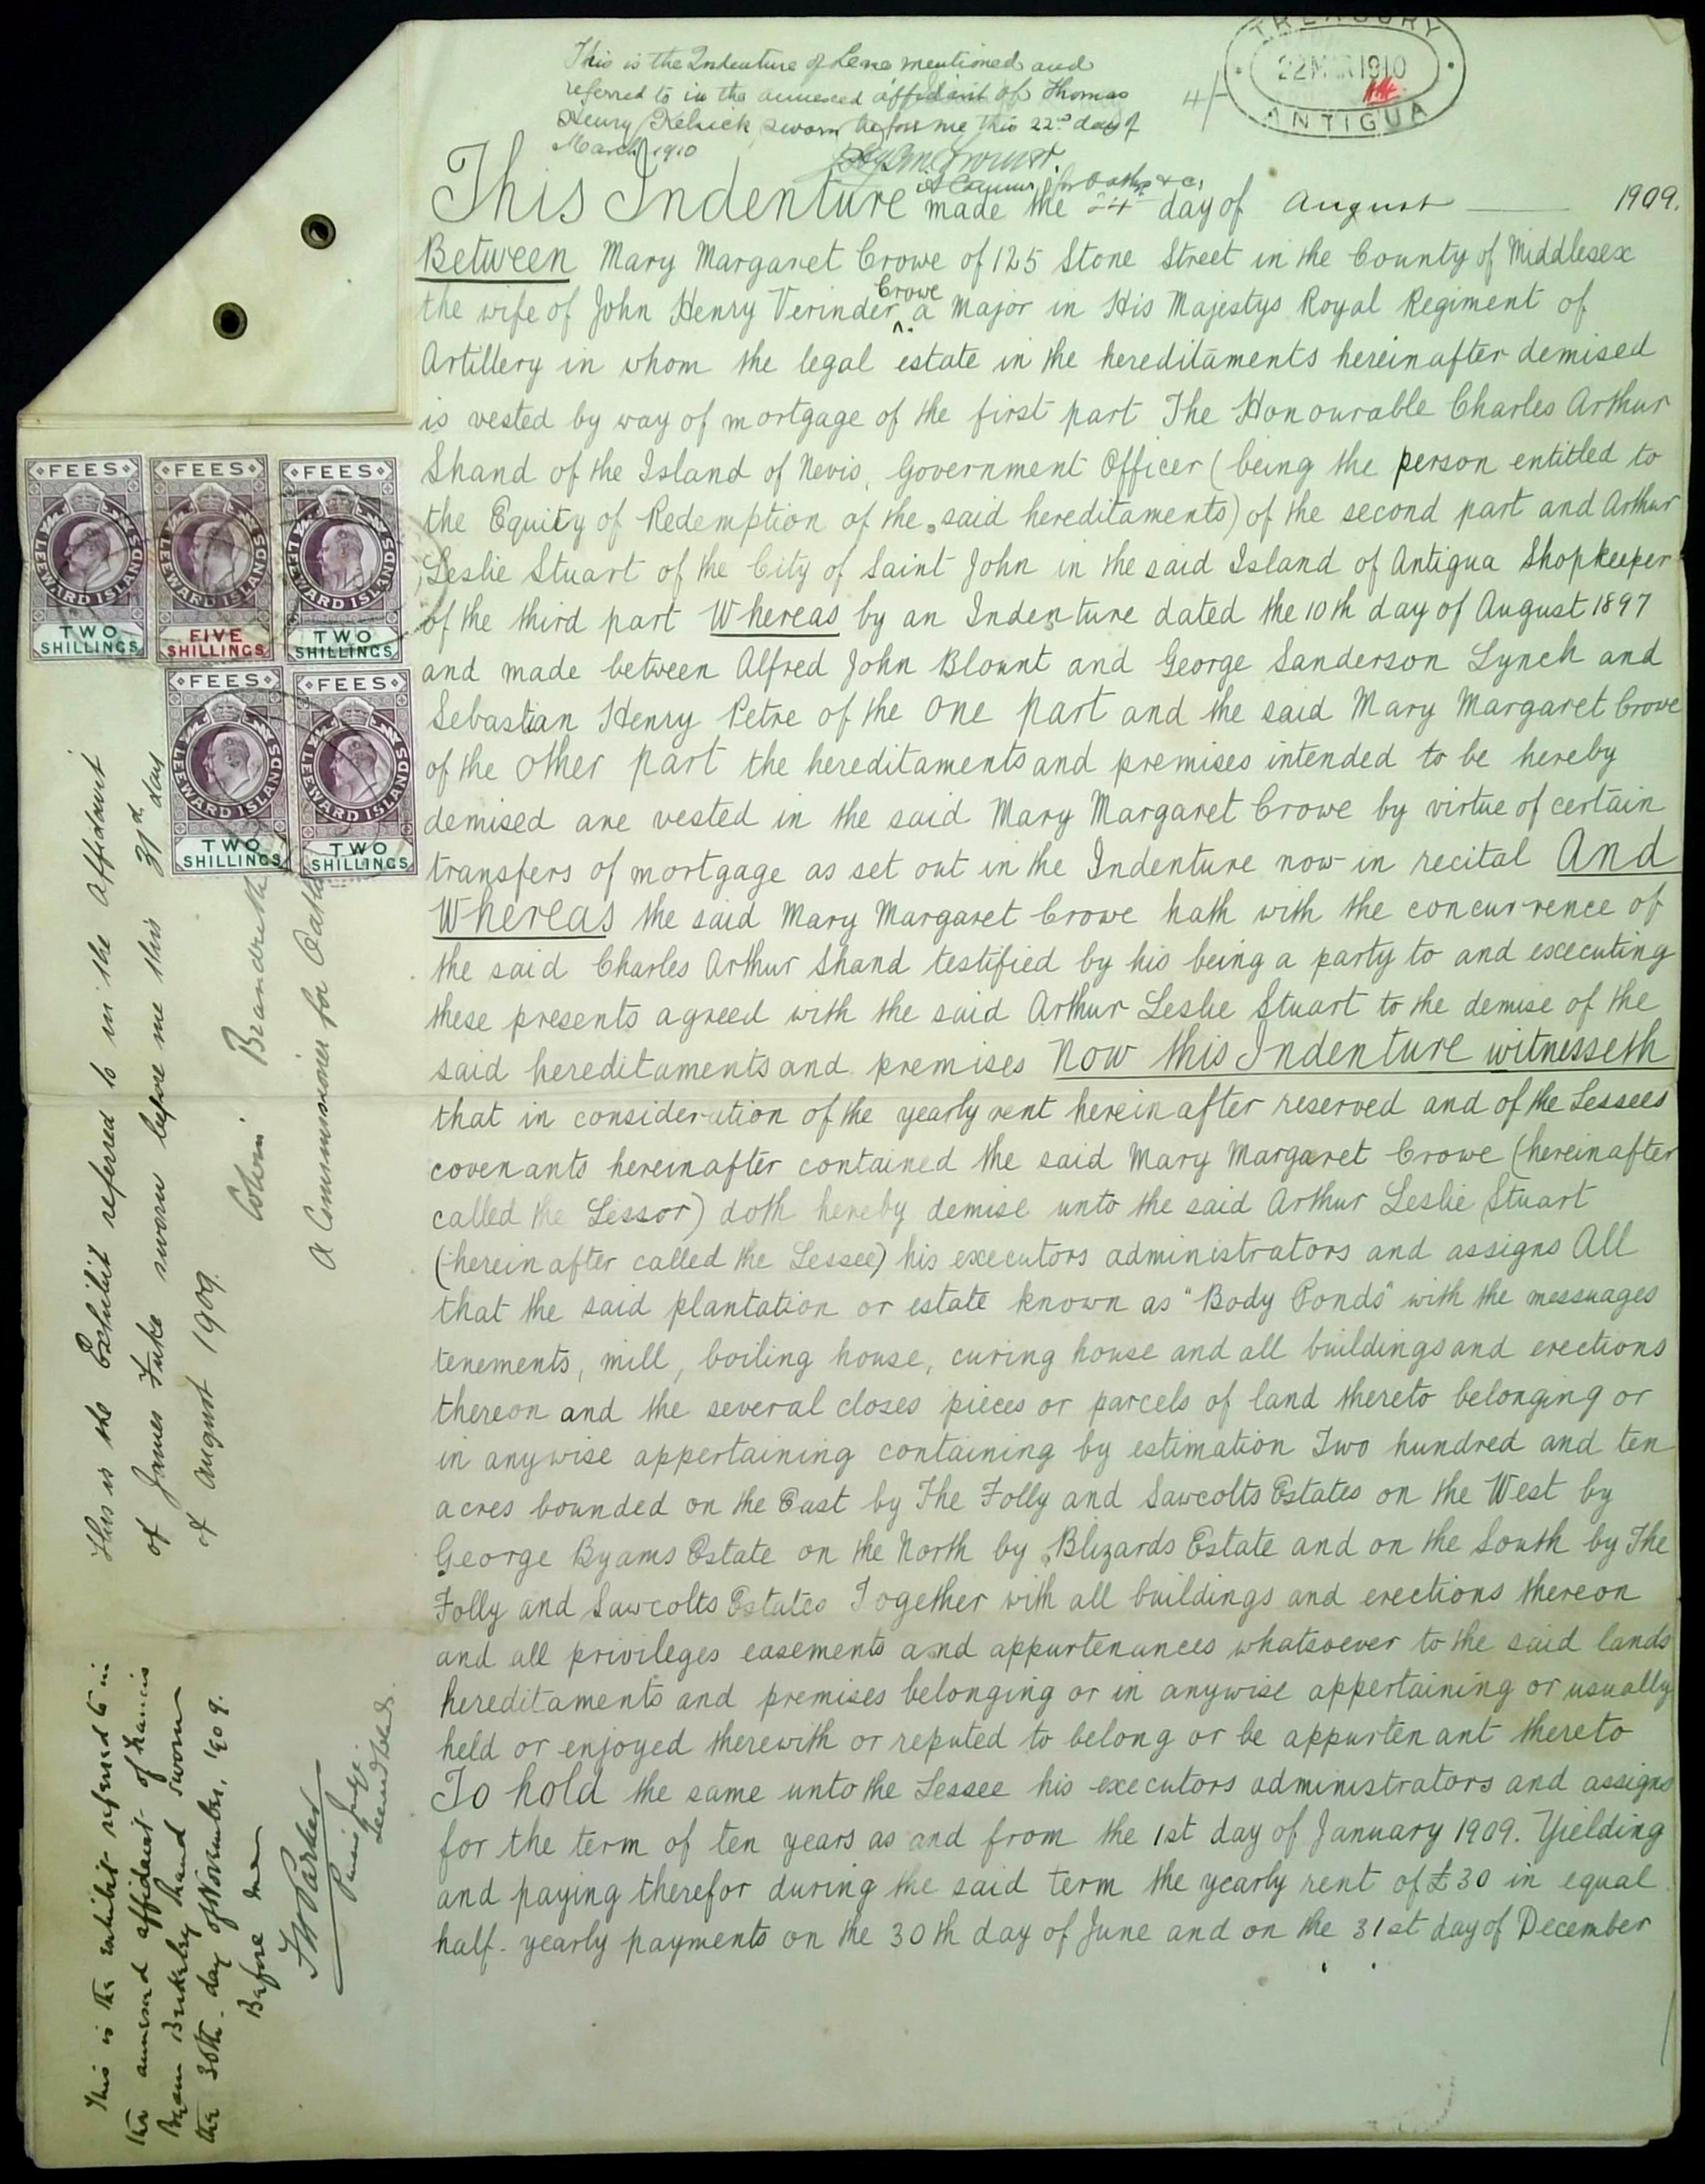 This is the Indenture of Lease mentioned and
referred to in the annexed affidavit of Thomas
Henry sworn before me this 22nd day of
March 1910
A Commr for Oaths &c.
4/-
TREASURY
22 MAR 1910
ANTIGUA
This Indenture made the 24th day of August 1909.
Between Mary Margaret Crowe of 125 Stone Street in the County of Middlesex
the wife of John Henry Verinder Crowe a Major in His Majestys Royal Regiment of
Artillery in whom the legal estate in the hereditaments hereinafter demised
is vested by way of mortgage of the first part The Honourable Charles Arthur
Shand of the Island of Nevis, Government Officer (being the person entitled to
the Equity of Redemption of the said hereditaments) of the second part and Arthur
Leslie Stuart of the City of Saint John in the said Island of Antigua Shopkeeper
of the third part Whereas by an Indenture dated the 10th day of August 1897
and made between Alfred John Blount and George Sanderson Lynch and
Sebastian Henry Petre of the one part and the said Mary Margaret Crowe
of the other part the hereditaments and premises intended to be hereby
demised are vested in the said Mary Margaret Crowe by virtue of certain
transfers of mortgage as set out in the Indenture now in recital And
Whereas the said Mary Margaret Crowe hath with the concurrence of
the said Charles Arthur Shand testified by his being a party to and executing
these presents agreed with the said Arthur Leslie Stuart to the demise of the
said hereditaments and premises Now this Indenture witnesseth
that in consideration of the yearly rent hereinafter reserved and of the Lessees
covenants hereinafter contained the said Mary Margaret Crowe (hereinafter
called the Lessor) doth hereby demise unto the said Arthur Leslie Stuart
(hereinafter called the Lessee) his executors administrators and assigns All
that the said plantation or estate known as "Body Ponds" with the messuages
tenements, mill, boiling house, curing house and all buildings and erections
thereon and the several closes pieces or parcels of land thereto belonging or
in anywise appertaining containing by estimation Two hundred and ten
acres bounded on the East by The Folly and Sawcolts Estates on the West by
George Byams Estate on the North by Blizards Estate and on the South by The
Folly and Sawcolts Estates Together with all buildings and erections thereon
and all privileges easements and appurtenances whatsoever to the said lands
hereditaments and premises belonging or in anywise appertaining or usually
held or enjoyed therewith or reputed to belong or be appurtenant thereto
To hold the same unto the Lessee his executors administrators and assigns
for the term of ten years as and from the 1st day of January 1909. Yielding
and paying therefor during the said term the yearly rent of £30 in equal
half-yearly payments on the 30th day of June and on the 31st day of December
FEES
LEEWARD ISLANDS
TWO
SHILLINGS
FEES
LEEWARD ISLANDS
FIVE
SHILLINGS
FEES
LEEWARD ISLANDS
TWO
SHILLINGS
FEES
LEEWARD ISLANDS
TWO
SHILLINGS
FEES
LEEWARD ISLANDS
TWO
SHILLINGS
This is the Exhibit referred to in the Affidavit
of James Fuke sworn before me this 31st day
of August 1909.
Colin Brandreth
A Commissioner for Oaths
This is the exhibit referred to in
the annexed affidavit of Francis
Beam Berkeley Shand sworn
the 30th day of November, 1909.
Before me
F W Parker
Puisne Judge
Leeward Islds.